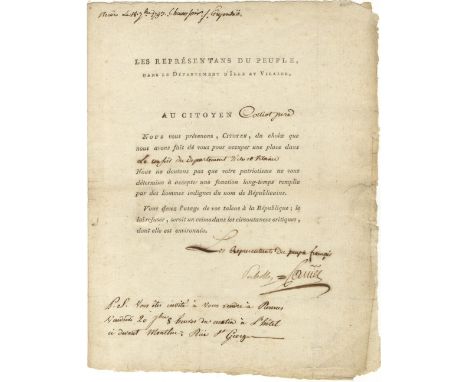 LES REPRÉSENTANS DU PEUPLE,
DANS LE DÉPARTEMENT D'ILLE ET VILAINE,
AU CITOYEN
NOUS vous prévenons, CITOYEN, du choix que
nous avons fait de vous pour occuper une place dans
Le Département d'ille et Vilaine
Nous ne doutons pas que votre patriotisme ne vous
détermine à accepter une fonction long-temps remplie
par des hommes indignes du nom de Républicains.
Vous devez l'usage de vos talens à la République ; le
lui refuser, seroit un crime dans les circonstances critiques,
dont elle est environnée.
Les Représentants du peuple français
P.S. Vous êtes invité à vous rendre à Rennes
20 8 heures du matin à l'hôtel
ci devant Rue St George